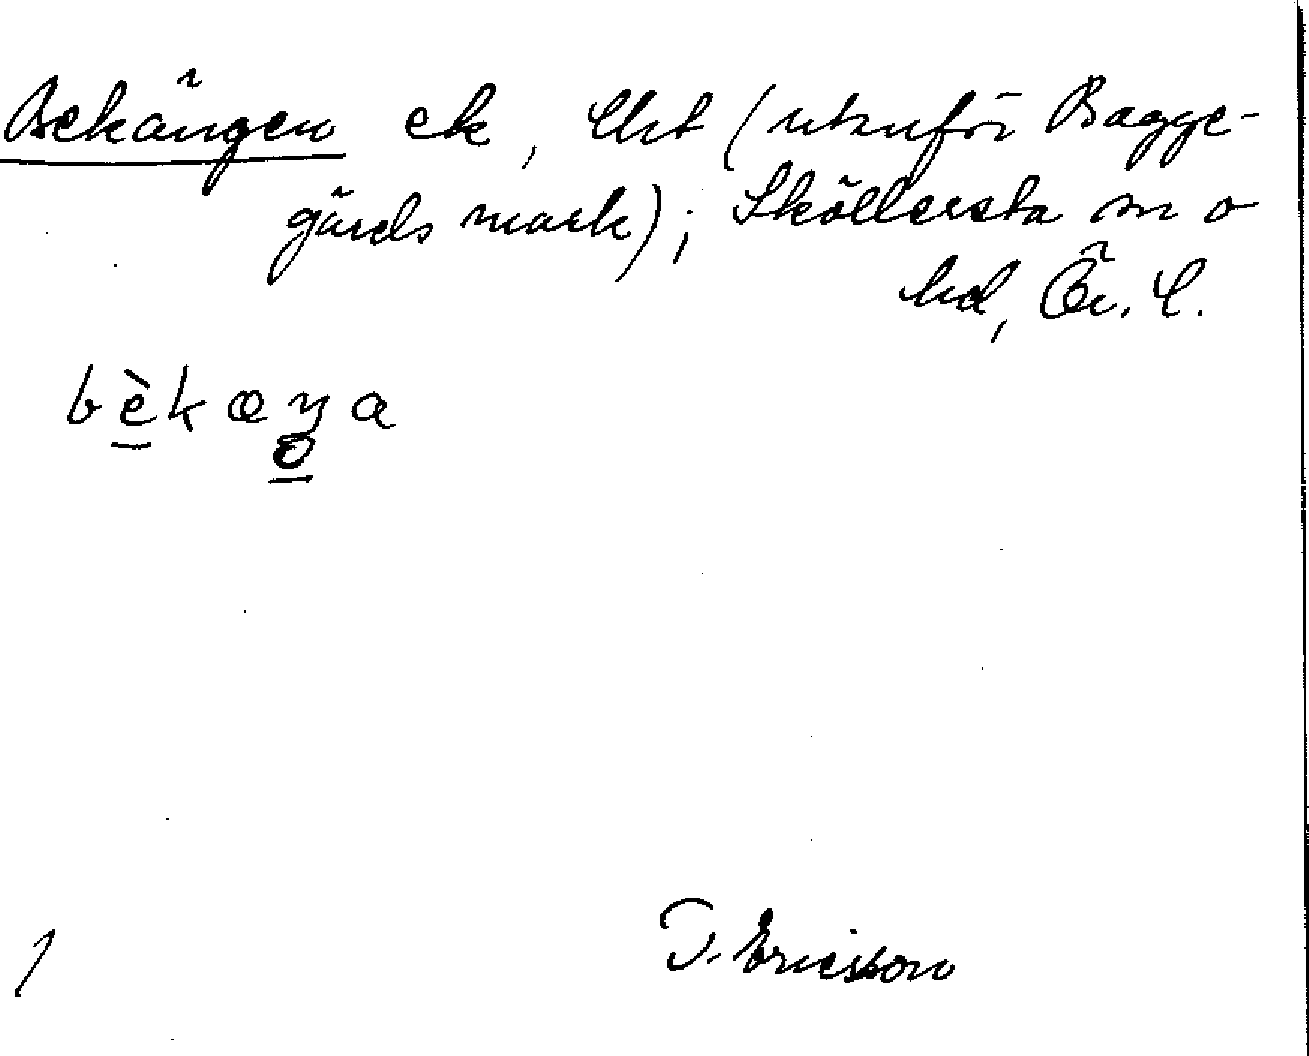 Bekängen ek, Elst (utanför Bagge-
gårds mark); Sköllersta sn o
hd, Ör. l.
bèkæŋa
o
T. Ericsson
1